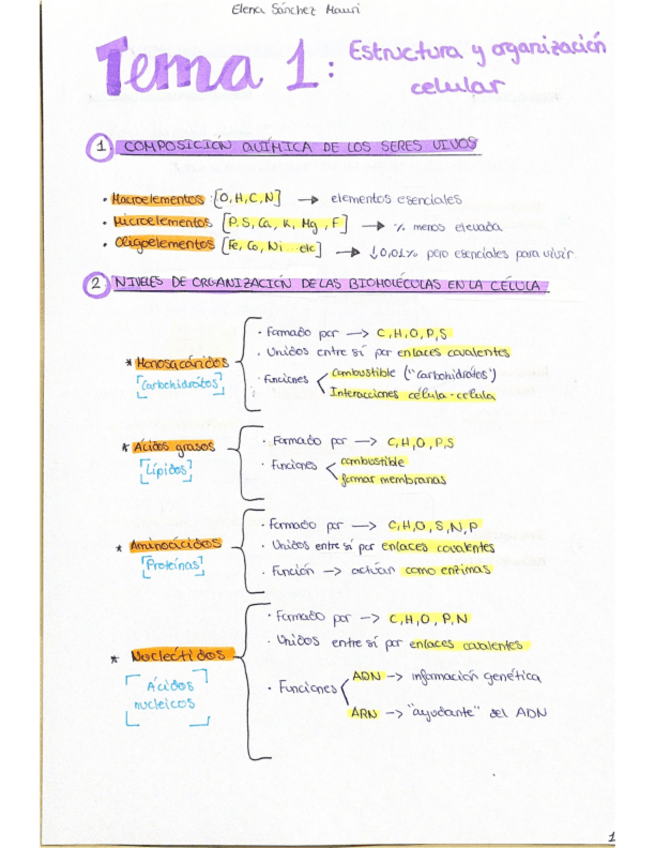 Elena Sánchez Mauri
Tema 1: Estructura y organización
celular
1 COMPOSICIÓN QUÍMICA DE LOS SERES VIVOS
· Macroelementos [O,H,C,N] → elementos esenciales
· Microelementos [P,S,Ca,K,Mg,F] → % menos elevada
· Oligoelementos [Fe,Co,Ni...etc] → ↓0,01% pero esenciales para vivir
2 NIVELES DE ORGANIZACIÓN DE LAS BIOMOLÉCULAS EN LA CÉLULA.
* Monosacáridos
[Carbohidratos]
· Formado por → C,H,O,P,S
· Unidos entre sí por enlaces covalentes
· Funciones
Combustible ("Carbohidratos")
Interacciones célula-célula
* Ácidos grasos
[Lípidos]
· Formado por → C,H,O,P,S
· Funciones
combustible
formar membranas
* Aminoácidos
[Proteínas]
· Formado por → C,H,O,S,N,P
· Unidos entre sí por enlaces covalentes
· Función → actúan como enzimas
* Nucleótidos
[Ácidos
nucleicos]
· Formado por → C,H,O,P,N
· Unidos entre sí por enlaces covalentes
· Funciones
ADN → información genética
ARN → "ayudante" del ADN
1